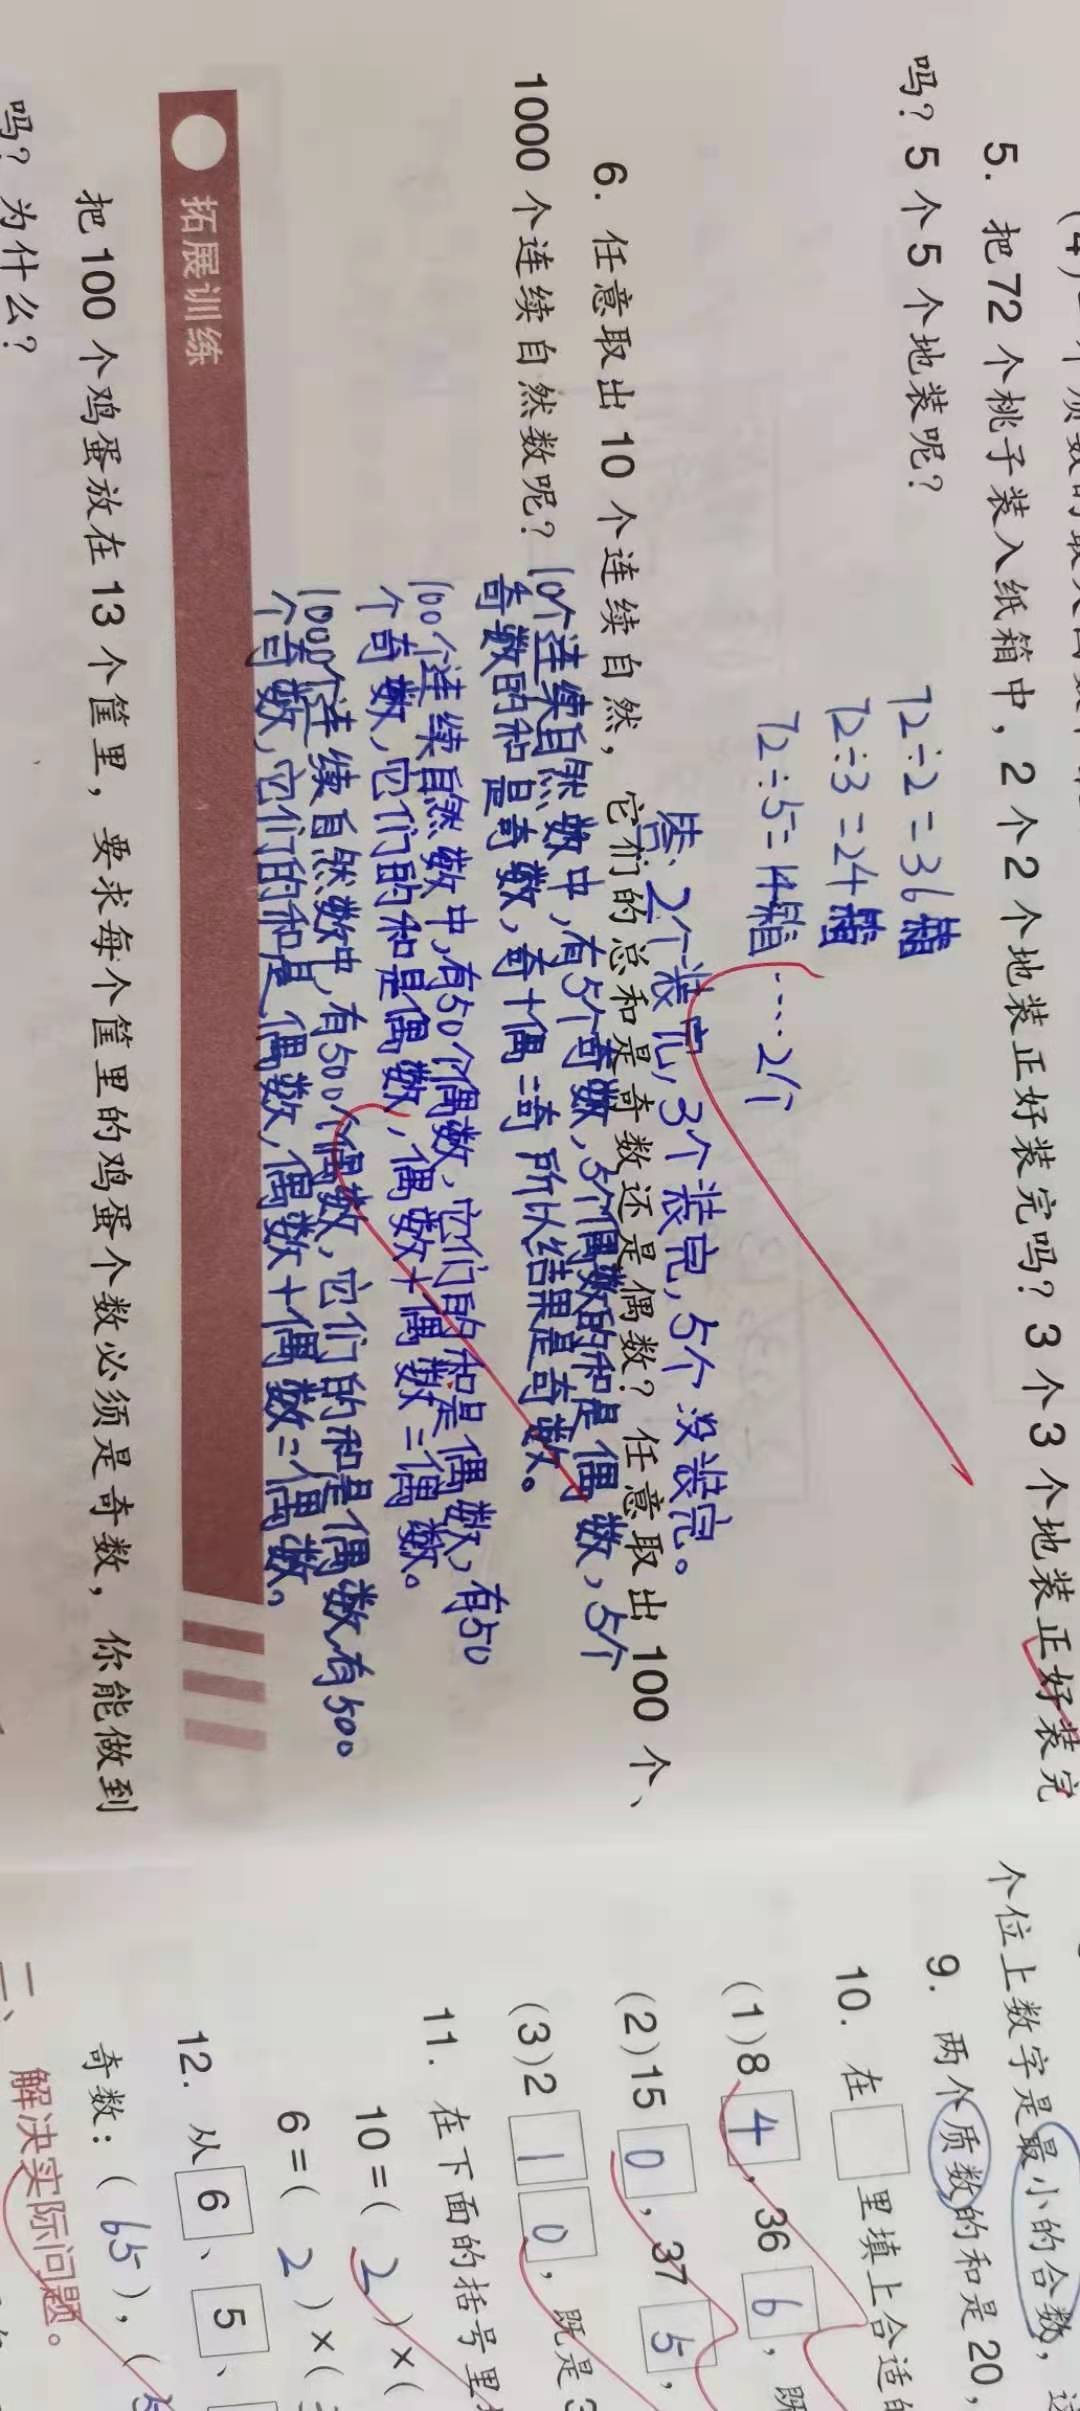 5. 把72个桃子装入纸箱中，2个2个地装正好装完吗？3个3个地装正好装完
吗？5个5个地装呢？
72÷2=36箱
72÷3=24箱
72÷5=14箱……2个
答：2个装完，3个装完，5个没装完。
6. 任意取出10个连续自然，它们的总和是奇数还是偶数？任意取出100个、
1000个连续自然数呢？
10个连续自然数中，有5个奇数，5个偶数的和是偶数，5个
奇数的和是奇数，奇+偶=奇 所以结果是奇数。
100个连续自然数中，有50个偶数，它们的和是偶数，有50
个奇数，它们的和是偶数，偶数+偶数=偶数。
1000个连续自然数中，有500个偶数，它们的和是偶数有500
个奇数，它们的和是偶数，偶数+偶数=偶数。
拓展训练
把100个鸡蛋放在13个筐里，要求每个筐里的鸡蛋个数必须是奇数，你能做到
吗？为什么？
个位上数字是最小的合数，这
9. 两个质数的和是20，
10. 在□里填上合适的
(1)8 4，36 6，既
(2)15 0，37 5，
(3)2 1 0，既是3
11. 在下面的括号里
10=( 2 )×(
6=( 2 )×(
12. 从 6、5、
奇数：( 65 )，(
二、解决实际问题。